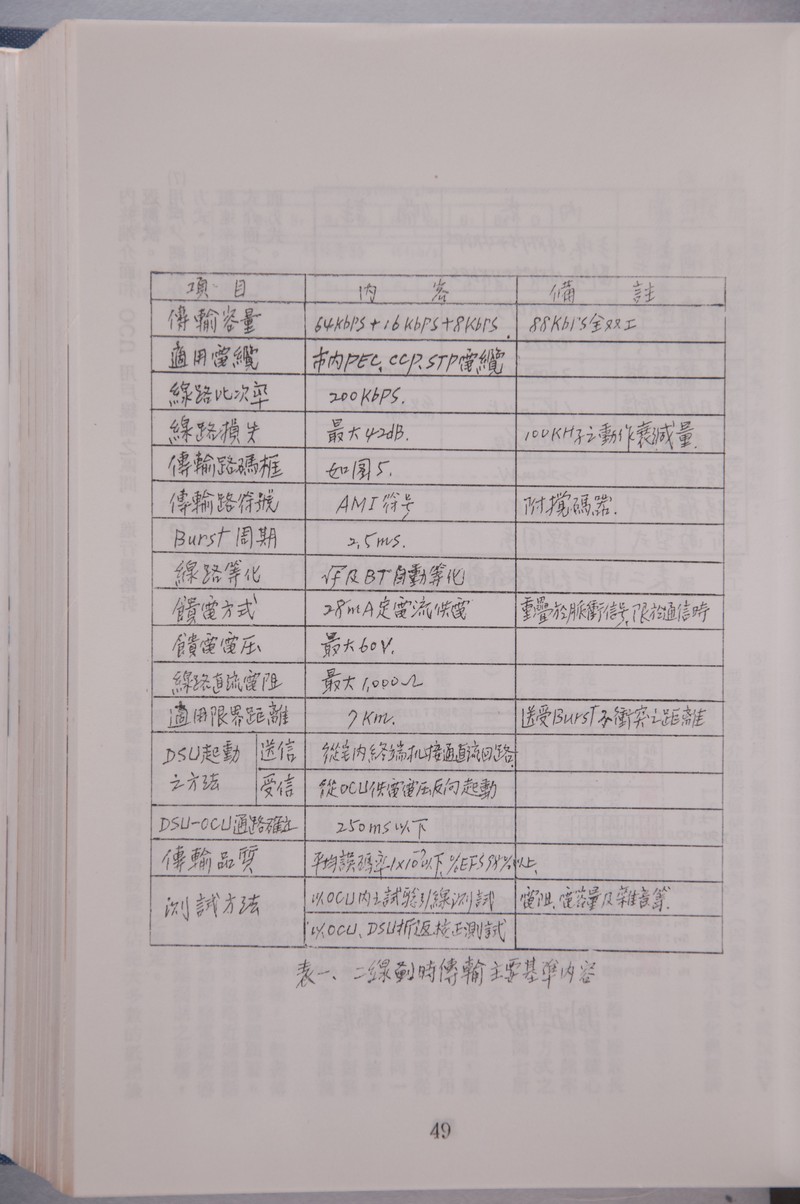 項目 內容 備註
傳輸容量 64Kbps+16Kbps+8Kbps 88Kbps全双工
適用電纜 市內PEC、CCP、STP電纜
線路比次率 200Kbps.
線路損失 最大42dB. 100KHz之動作衰減量
傳輸路碼框 如图5.
傳輸路符號 AMI符号 附攪碼器.
Burst周期 2.5ms.
線路等化 √F及BT自動等化
饋電方式 28mA定電流供電 重疊於脈衝信号,限於通信時
饋電電压 最大60V.
線路直流電阻 最大1,000Ω
適用限界距離 7Km. 送受Burst不衝突之距離
DSU起動之方法 送信 從宅內終端机接通直流回路
受信 從OCU供電電压反向起動
DSU-OCU通路確立 250ms以下
傳輸品質 平均誤碼率1×10⁻⁷以下,%EFS 以上
測試方法 以OCU內之試驗引線測試 電阻、電容量及雜音等.
以OCU、DSU折返校正測試
表一、二線劃時傳輸主要基準內容
49